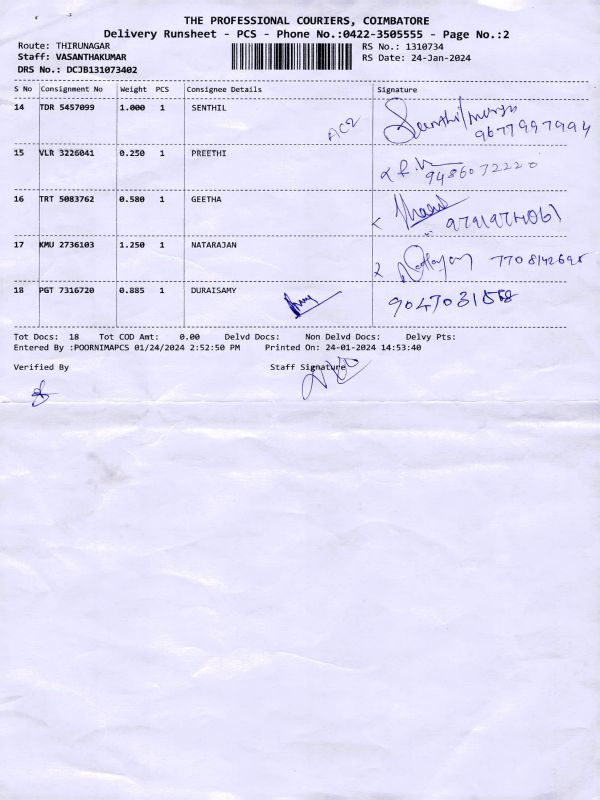 THE PROFESSIONAL COURIERS, COIMBATORE
Delivery Runsheet - PCS - Phone No.:0422-3505555 - Page No.:2
Route: THIRUNAGAR RS No.: 1310734
Staff: VASANTHAKUMAR RS Date: 24-Jan-2024
DRS No.: DCJB131073402
S No Consignment No Weight PCS Consignee Details Signature
14 TDR 5457099 1.000 1 SENTHIL
9677997994
15 VLR 3226041 0.250 1 PREETHI
9486072220
16 TRT 5083762 0.580 1 GEETHA
9791974061
17 KMU 2736103 1.250 1 NATARAJAN 7708142698
18 PGT 7316720 0.885 1 DURAISAMY
Tot Docs: 18 Tot COD Amt: 0.00 Delvd Docs: Non Delvd Docs: Delvy Pts:
Entered By :POORNIMAPCS 01/24/2024 2:52:50 PM Printed On: 24-01-2024 14:53:40
Verified By Staff Signature